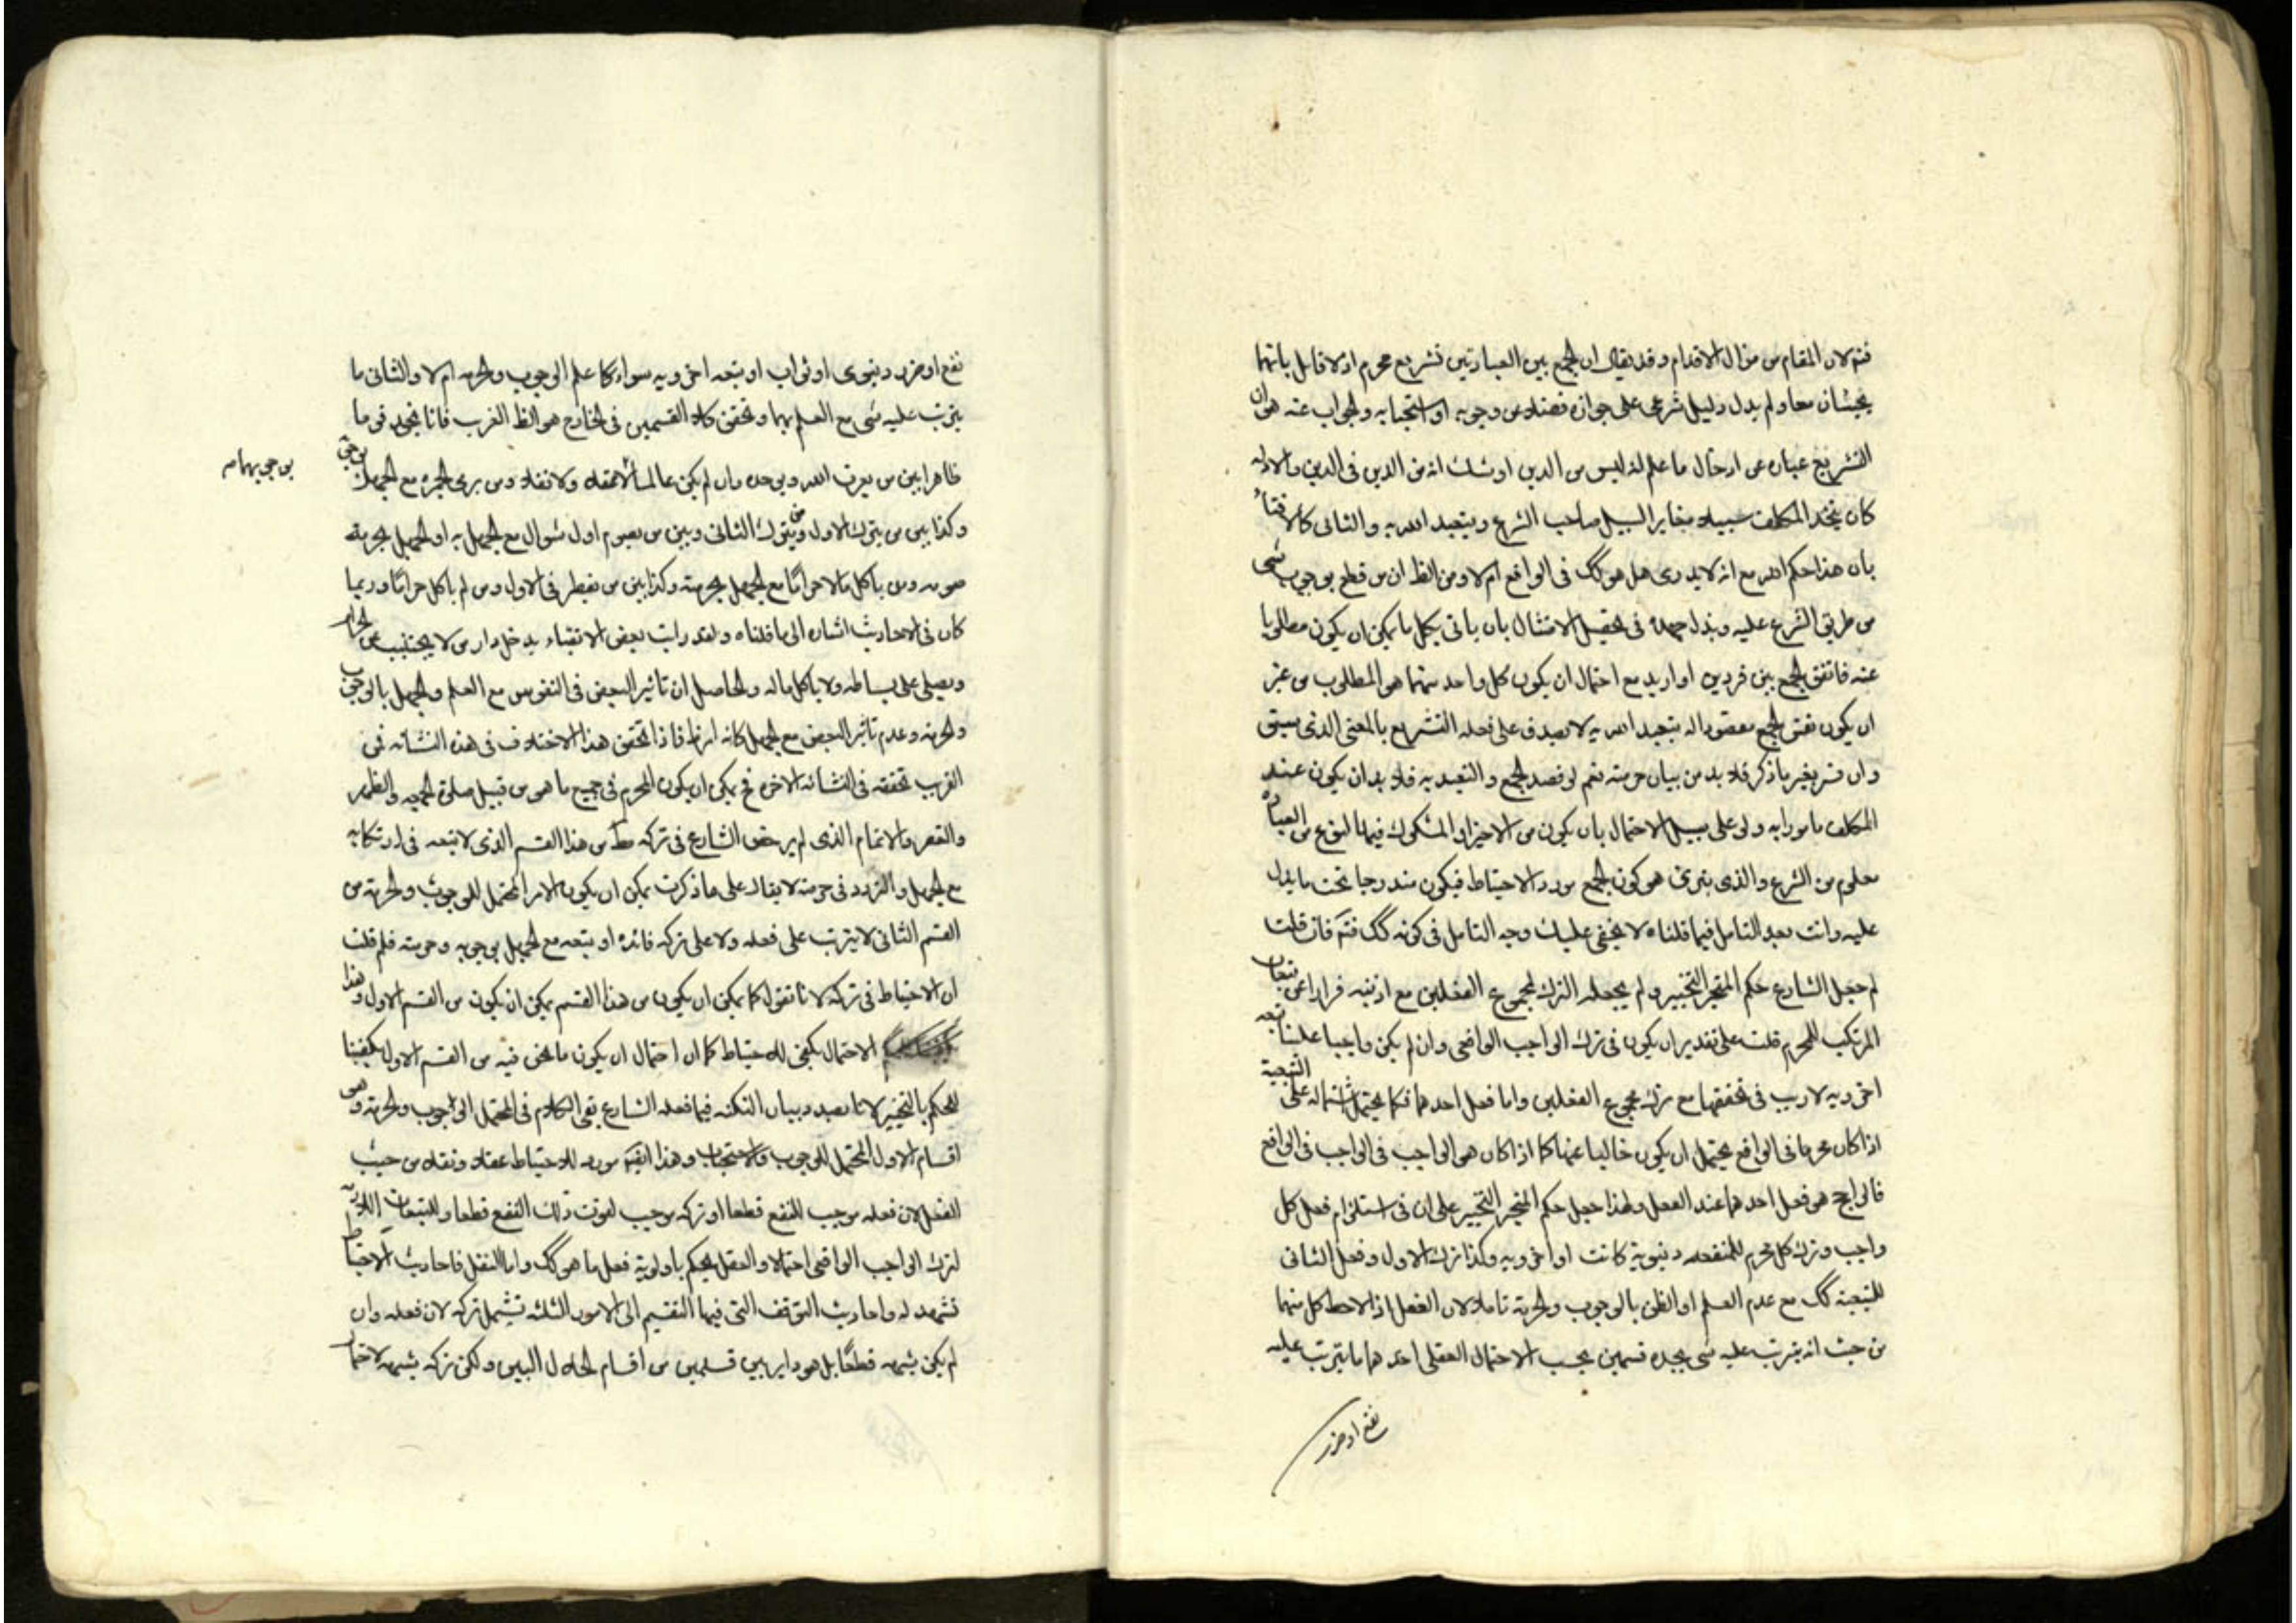 فتم لان المقام من مزال الاقدام وقد يقال ان الجمع بين العبادتين تشريع محرم اذ لا قائل بانهما
يجبان معا ولم يدل دليل شرعي على جوازه فضلا عن وجوبه او استحبابه والجواب عنه هو ان
التشريع عباره عن ادخال ما علم انه ليس من الدين او شك انه من الدين في الدين والاول
كان يتخذ المكلف سبيلا مغايرا لسبيل صاحب الشرع ويتعبد الله به والثاني كالافتاء
بان هذا حكم الله مع انه لا يدرى هل هو كك في الواقع ام لا ومن الظ ان من قطع بوجوب شيء
من طريق الشرع عليه وبذل جهده في تحصيل الامتثال بان ياتي بكل ما يمكن ان يكون مطلوبا
عنه فاتفق الجمع بين فردين او ازيد مع احتمال ان يكون كل واحد منهما هو المطلوب من غير
ان يكون نفس الجمع مقصودا له يتعبد الله به لا يصدق على فعله التشريع بالمعنى الذي سبق
وان فسر بغير ما ذكر فلا بد من بيان حرمته نعم لو قصد الجمع والتعبد به فلا بد ان يكون عند
المكلف مامورا به ولو على سبيل الاحتمال بان يكون من الاجزاء المشكوك فيها لنوع من العباده
معلوم من الشرع والذي ينوى هو كون الجمع مورد الاحتياط فيكون مندرجا تحت ما يدل
عليه وانت بعد التامل فيما قلناه لا يخفى عليك وجه التامل في كونه كك فتم فان قلت
لم جعل الشارع حكم المتحير التخيير ولم يجعله الترك لمجموع الفعلين مع ان فيه فرارا عن تبعات
المرتكب للمحرم قلت على تقدير ان يكون في ترك الواجب الواقعي وان لم يكن واجبا علينا تبعه
اخرويه لا ريب في تحققها مع ترك مجموع الفعلين واما فعل احدهما فكما يحتمل اشتماله على التبعية
اذا كان محرما في الواقع يحتمل ان يكون خاليا عنها كما اذا كان هو الواجب في الواقع
فالراجح هو فعل احدهما عند العقل ولهذا جعل حكم المتحير التخيير على ان في استلزام فعل كل
واجب وترك كل محرم للمنفعه دنيوية كانت او اخرويه وكذا ترك الاول وفعل الثاني
للتبعية كك مع عدم العلم او الظن بالوجوب والحرمة تاملا لان الفعل اذا لاحظ كل منهما
من حيث انه يترتب عليه شيء يجده قسمين بحسب الاحتمال العقلي احدهما ما يترتب عليه
نفع او ضرر
نفع او ضرر دنيوى او ثواب او تبعه اخرويه سواء كا علم الوجوب والحرمه ام لا والثاني ما
يترتب عليه شي مع العلم بهما وتحقق كلا القسمين في الخارج هو الظ القريب فانا نجد فرقا ما
ظاهرا بين من يعرف الله ويوحده وان لم يكن عالما عقلا ولا نقلا ومن يرى مع الجهل بوجوبه
بوجوبهما ص
وكذا بين من يترك الاول ومن يترك الثاني وبين من يصوم اول شوال مع الجهل به او الجهل بحرمة
صومه ومن ياكل مالا حراما مع الجهل بحرمته وكذا بين من يفطر في الاول ومن لم ياكل حراما وربما
كان في الاحاديث اشاره الى ما قلناه ولقد رايت بعض الاتقياء يدخل دار من لا يجتنب عن الحرام
ويصلي على بساطه ولا ياكل ماله والحاصل ان تاثير البعض في النفوس مع العلم والجهل بالوجوب
والحرمه وعدم تاثير البعض مع الجهل كانه امر ظ فاذا تحقق هذا الاختلاف في هذه النشاه فمن
القريب تحققه في النشاه الاخره فح يمكن ان يكون المحرم في جميع ما هو من قبيل صلوة الجمعه والظهر
والقصر والاتمام الذي لم يرخص الشارع في تركه مط من هذا القسم الذي لا تبعه في ارتكابه
مع الجهل والتردد في حرمته لا يقال على ما ذكرت يمكن ان يكون الامر المحتمل للوجوب والحرمه من
القسم الثاني لا يترتب على فعله ولا على تركه فائده او تبعه مع الجهل بوجوبه وحرمته فلم قلت
ان الاحتياط في تركه لانا نقول كما يمكن ان يكون من هذا القسم يمكن ان يكون من القسم الاول وهذا
الاحتمال يكفي للاحتياط كما ان احتمال ان يكون ما نحن فيه من القسم الاول يكفينا
للحكم بالتخيير لانا بصدد بيان النكته فيما فعله الشارع بقي الكلام في المحتمل الوجوب والحرمة وهو
اقسام الاول المحتمل للوجوب والاستحباب وهذا ايضا مورد للاحتياط عقلا ونقلا من حيث
الفعل لان فعله موجب للنفع قطعا او تركه موجب لفوت ذلك النفع قطعا وللتبعات اللازمة
لترك الواجب الواقعي احتمالا والعقل يحكم باولوية فعل ما هو كك واما النقل فاحاديث الاحتياط
تشهد له واحاديث التوقف التي فيها التقسيم الى الامور الثلثه تشمل تركه لان فعله وان
لم يكن شبهه قطعا بل هو داير بين قسمين من اقسام الحلال البين ولكن تركه شبهه لاحتمال